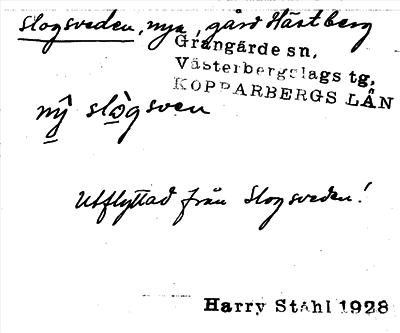 Slogsveden, nya, gård Hästberg
Grangärde sn,
Västerbergslags tg,
KOPPARBERGS LÄN
nŷ slògsven
Utflyttad från Slogsveden!
Harry Ståhl 1928